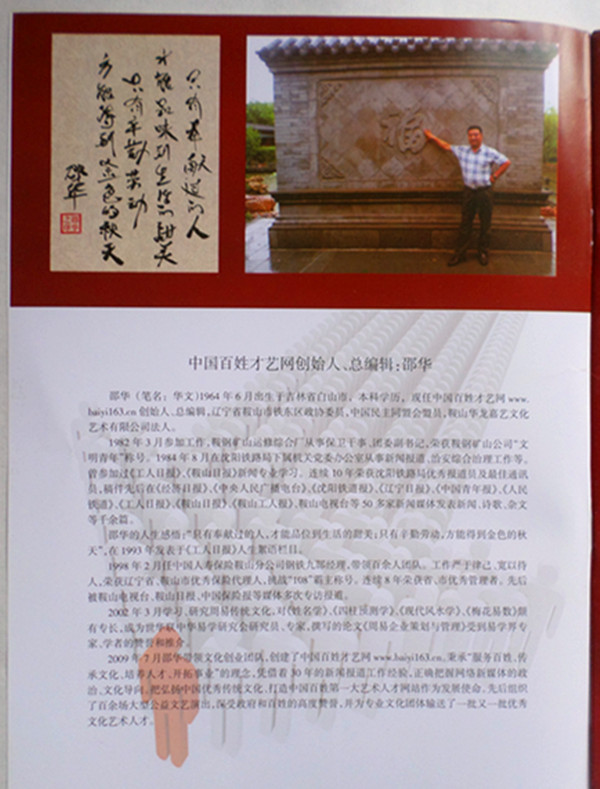 只有奉献过的人
才能品味到生活的甜美
只有辛勤劳动
方能得到金色的秋天
邵华
福
中国百姓才艺网创始人、总编辑：邵华
邵华（笔名：华文）1964年6月出生于吉林省白山市，本科学历，现任中国百姓才艺网www.
baiyi163.cn创始人、总编辑，辽宁省鞍山市铁东区政协委员，中国民主同盟会盟员，鞍山华龙嘉艺文化
艺术有限公司法人。
1982年3月参加工作，鞍钢矿山运修综合厂从事保卫干事、团委副书记，荣获鞍钢矿山公司“文
明青年”称号。1984年8月在沈阳铁路局下属机关党委办公室从事新闻报道、治安综合治理工作等。
曾参加过《工人日报》、《鞍山日报》新闻专业学习。连续10年荣获沈阳铁路局优秀报道员及最佳通讯
员，稿件先后在《经济日报》、《中央人民广播电台》、《沈阳铁道报》、《辽宁日报》、《中国青年报》、《人民
铁道》、《工人日报》、《鞍山日报》、《鞍山工人报》、鞍山电视台等50多家新闻媒体发表新闻、诗歌、杂文
等千余篇。
邵华的人生感悟：“只有奉献过的人，才能品位到生活的甜美；只有辛勤劳动，方能得到金色的秋
天”，在1993年发表于《工人日报》人生絮语栏目。
1998年2月任中国人寿保险鞍山分公司钢铁九部经理，带领百余人团队。工作严于律己，宽以待
人，荣获辽宁省、鞍山市优秀保险代理人，挑战“108”霸主称号。连续8年荣获省、市优秀管理者。先后
被鞍山电视台、鞍山日报、中国保险报等媒体多次专访报道。
2002年3月学习、研究周易传统文化，对《姓名学》、《四柱预测学》、《现代风水学》、《梅花易数》颇
有专长，成为世界联中华易学研究会研究员、专家，撰写的论文《周易企业策划与管理》受到易学界专
家、学者的赞誉和推介。
2009年7月邵华带领文化创业团队，创建了中国百姓才艺网www.baiyi163.cn。秉承“服务百姓、传
承文化、培养人才、开拓事业”的理念，凭借着30年的新闻报道工作经验，正确把握网络新媒体的政
治、文化导向，把弘扬中国优秀传统文化、打造中国百姓第一大艺术人才网站作为发展使命。先后组织
了百余场大型公益文艺演出，深受政府和百姓的高度赞誉，并为专业文化团体输送了一批又一批优秀
文化艺术人才。